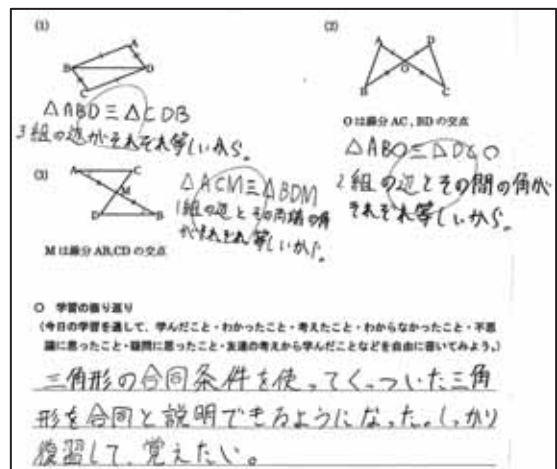 (1)
A
B
D
C
△ABD≡△CDB
3組の辺がそれぞれ等しいから。
(2)
A
D
O
B
C
Oは線分 AC, BD の交点
△ABO≡△DCO
2組の辺とその間の角が
それぞれ等しいから。
(3)
A
C
M
D
B
M は線分 AB,CD の交点
△ACM≡△BDM
1組の辺とその両端の角
がそれぞれ等しいから。
○ 学習の振り返り
(今日の学習を通して、学んだこと・わかったこと・考えたこと・わからなかったこと・不思
議に思ったこと・疑問に思ったこと・友達の考えから学んだことなどを自由に書いてみよう。)
三角形の合同条件を使ってくっついた三角
形を合同と説明できるようになった。しっかり
復習して、覚えたい。